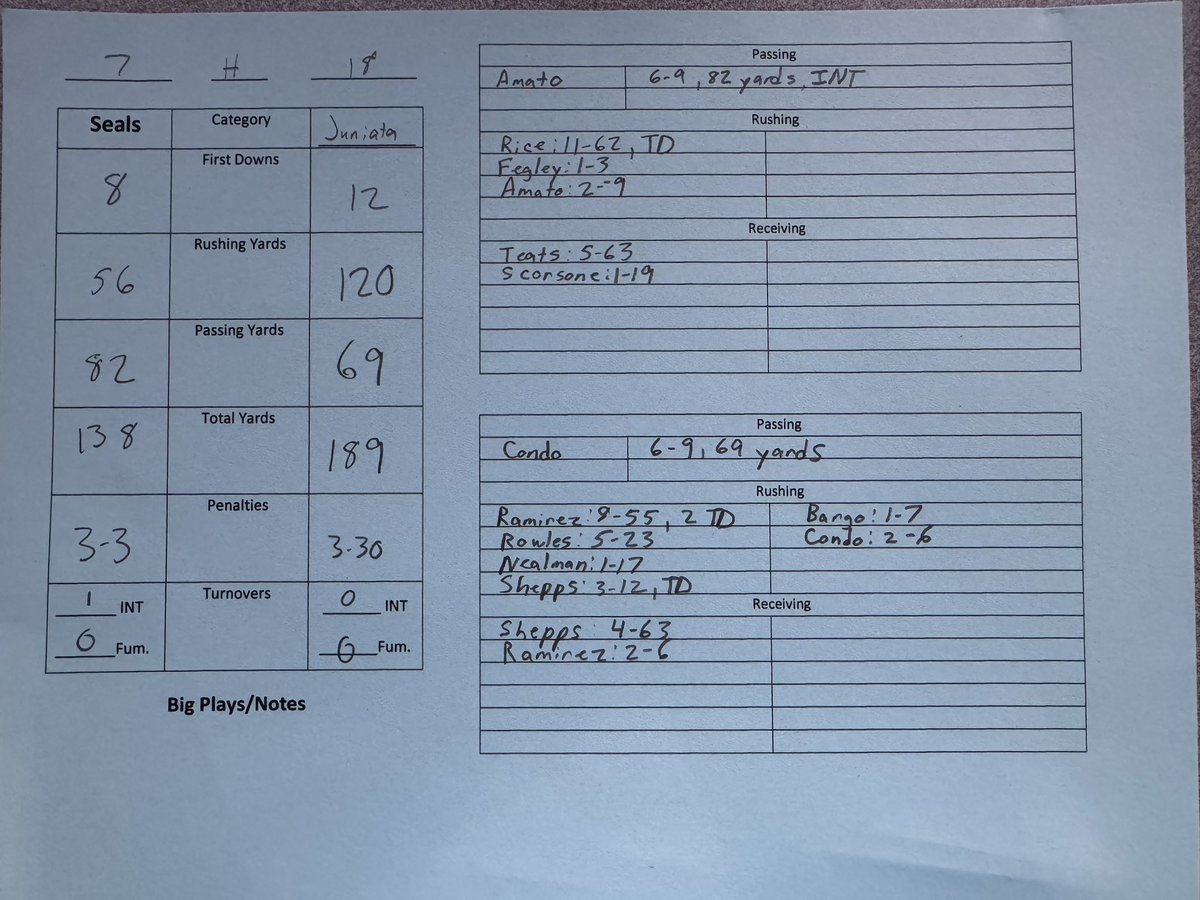 7 H 18
Seals Category Juniata
First Downs
8 12
Rushing Yards
56 120
Passing Yards
82 69
Total Yards
138 189
Penalties
3-3 3-30
Turnovers
1 INT 0 INT
0 Fum. 0 Fum.
Big Plays/Notes
Passing
Amato 6-9, 82 yards, INT
Rushing
Rice: 11-62, TD
Fegley: 1-3
Amato: 2--9
Receiving
Teats: 5-63
Scorsone: 1-19
Passing
Condo 6-9, 69 yards
Rushing
Ramirez: 8-55, 2 TD Bango: 1-7
Rowles: 5-23 Condo: 2-6
Nealman: 1-17
Shepps: 3-12, TD
Receiving
Shepps 4-63
Ramirez: 2-6